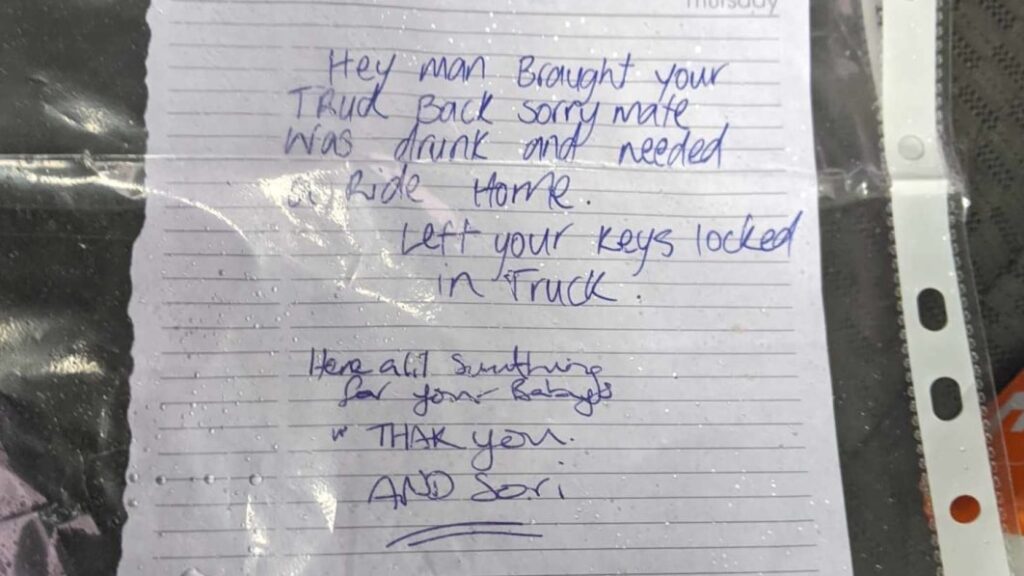 Thursday
Hey man Braught your
Truck Back sorry mate
Was drunk and needed
a Ride Home.
Left your keys locked
in Truck.
Here a lil Sumthing
for your Babeys
" THAK you.
AND Sori